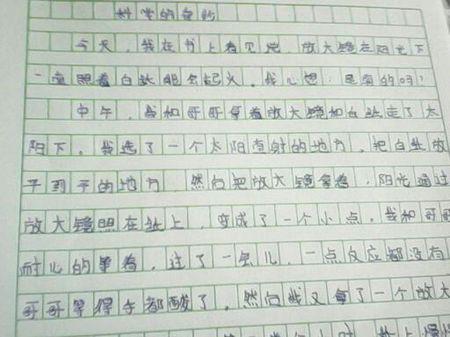 科学的奥妙
今天，我在书上看见把放大镜在阳光下
一直照着白纸能会起火，我心想：是真的吗？
中午，我和哥哥拿着放大镜和白纸走了太
阳下，我选了一个太阳直射的地方，把白纸放
子到干的地方，然向把放大镜拿着，阳光通过
放大镜照在纸上，变成了一个小点，我和哥哥
耐心的等着，过了一会儿，一点反应都没有
哥哥等得手都酸了，然向我又拿了一个放大